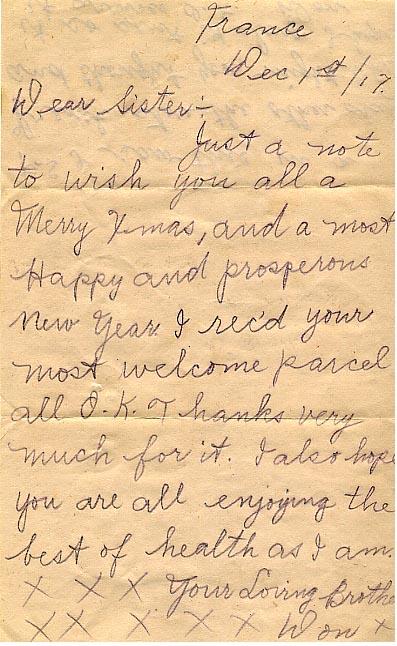 France
Dec 1st/17.
Dear Sister:-
Just a note
to wish you all a
Merry Xmas, and a most
Happy and prosperous
New Year. I rec'd your
most welcome parcel
all O.K. Thanks very
much for it. I also hope
you are all enjoying the
best of health as I am.
X X X Your Loving Brothe
X X X X X Don X